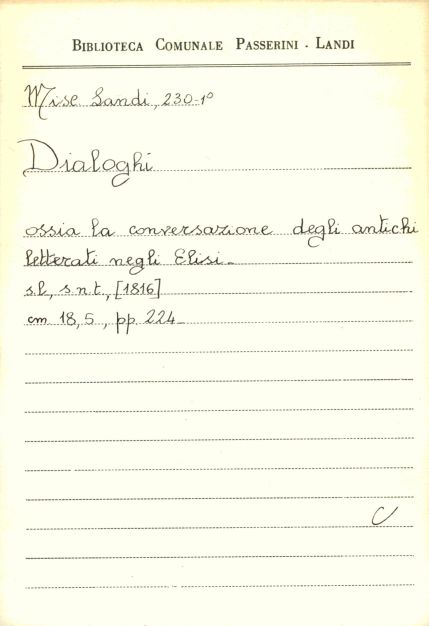 BIBLIOTECA COMUNALE PASSERINI - LANDI
Misc Landi, 230-1º
Dialoghi
ossia la conversazione degli antichi
letterati negli Elisi_
s.l., s.n.t., [1816]
cm 18,5, pp. 224_
C